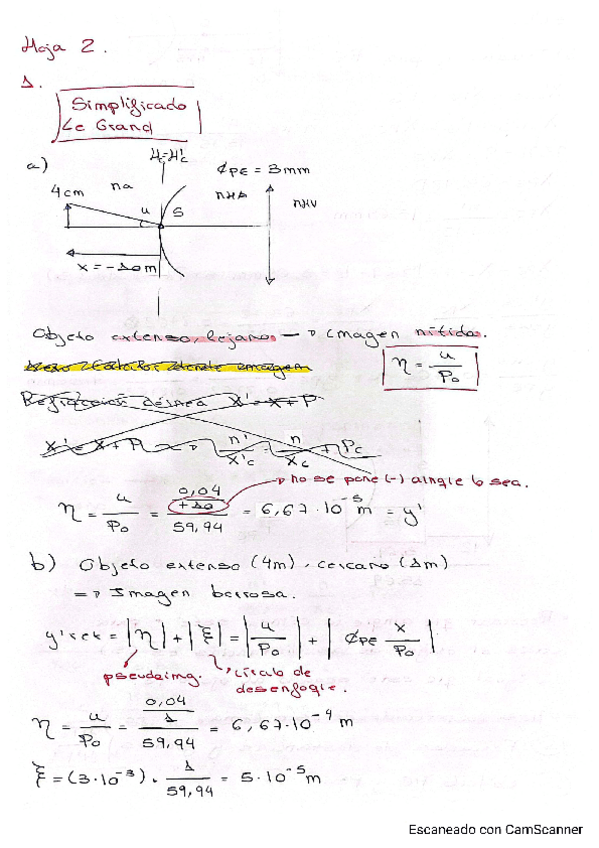 Hoja 2.
1.
Simplificado
Le Grand
a)
Hc=H'c
ϕPE = 3mm
4cm
na
u
S
nHA
nHV
x = -10m
Objeto extenso, lejano → Imagen nítida.
η = u/P₀
Refracción X' = X + P
X' = X + P → n'/x'c = n/xc + Pc
→ no se pone (-) aunque lo sea.
η = u/P₀ = (0,04/+10)/59,94 = 6,67·10⁻⁵ m = y'
b) Objeto extenso (4m), cercano (1m)
=> Imagen borrosa.
y'ret = |η| + |ξ| = |u/P₀| + |ϕPE x/P₀|
pseudoimg.
círculo de
desenfoque.
η = u/P₀ = (0,04/1)/59,94 = 6,67·10⁻⁴ m
ξ = (3·10⁻³) · 1/59,94 = 5·10⁻⁵ m
Escaneado con CamScanner